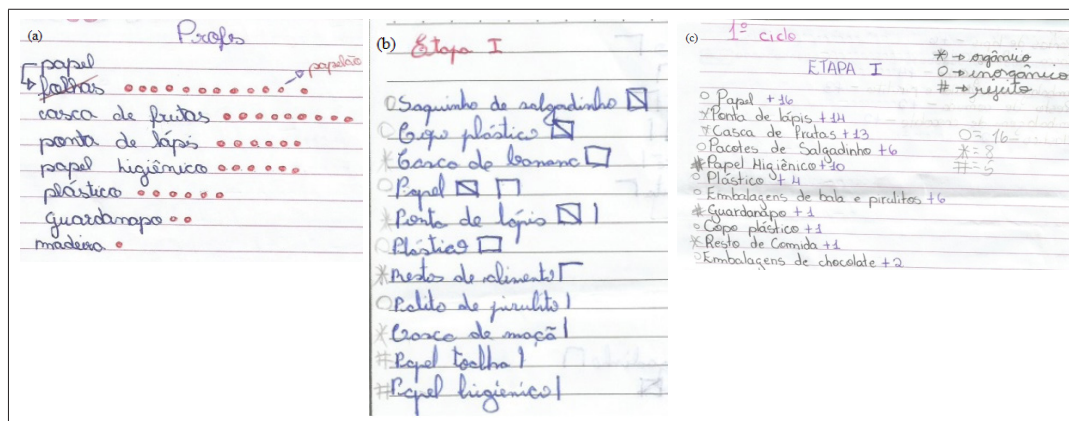 (a)
Profes
papel
papelão
folhas
casca de frutas
ponta de lápis
papel higiênico
plástico
guardanapo
madeira
(b)
Etapa I
O Saquinho de salgadinho
O Copo plástico
* Casca de banana
O Papel
* Ponta de lápis |
O Plástico
* Restos de alimento
O Palito de pirulito |
* Casca de maçã |
# Papel toalha |
# Papel higiênico |
(c)
1º ciclo
* → orgânico
ETAPA I
O → inorgânico
# → rejeito
O Papel +16
* Ponta de lápis +14
* Casca de frutas +13
O = 16
O Pacotes de Salgadinho +6
* = 8
# Papel Higiênico +10
# = 5
O Plástico +4
O Embalagens de bala e pirulitos +6
# Guardanapo +1
O Copo plástico +1
* Resto de Comida +1
O Embalagens de chocolate +2